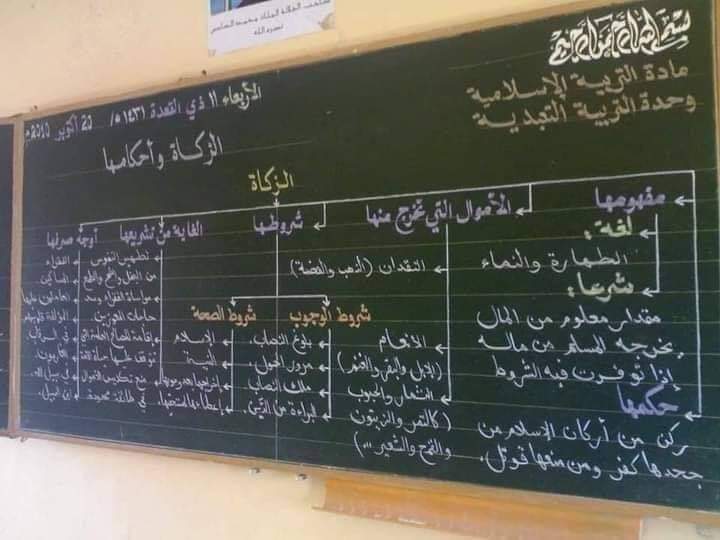 صاحب الجلالة الملك محمد السادس
نصره الله
بسم الله الرحمن الرحيم
مادة التربية الإسلامية
وحدة التربية التعبدية
الأربعاء 11 ذي القعدة 1431هـ / 20 أكتوبر 2010م
الزكاة وأحكامها
الزكاة
مفهومها
لغة:
الطهارة والنماء
شرعا:
مقدار معلوم من المال
يخرجه المسلم من ماله
إذا توفرت فيه الشروط
حكمها
ركن من أركان الإسلام من
جحدها كفر ومن منعها قوتل.
الأموال التي تخرج منها
النقدان (الذهب والفضة)
الأنعام
(الإبل والبقر والغنم)
الثمار والحبوب
(كالتمر والزيتون
والقمح والشعير ...)
شروطها
شروط الوجوب
بلوغ النصاب.
مرور الحول.
ملك النصاب.
البراءة من الدَّين.
شروط الصحة
الإسلام
النية
إخراجها بعد وجوبها
إعطاءها لمستحقيها.
الغاية من تشريعها
تطهير النفوس
من البخل والشح والطمع
مواساة الفقراء وسد
حاجات المعوزين.
إقامة المصالح العامة التي
تتوقف عليها حياة الأمة
منع تكديس الأموال
في طائفة محدودة.
أوجه صرفها
الفقراء
المساكين
العاملون عليها
المؤلفة قلوبهم
في الرقاب.
الغارمون.
في سبيل الله.
ابن السبيل.